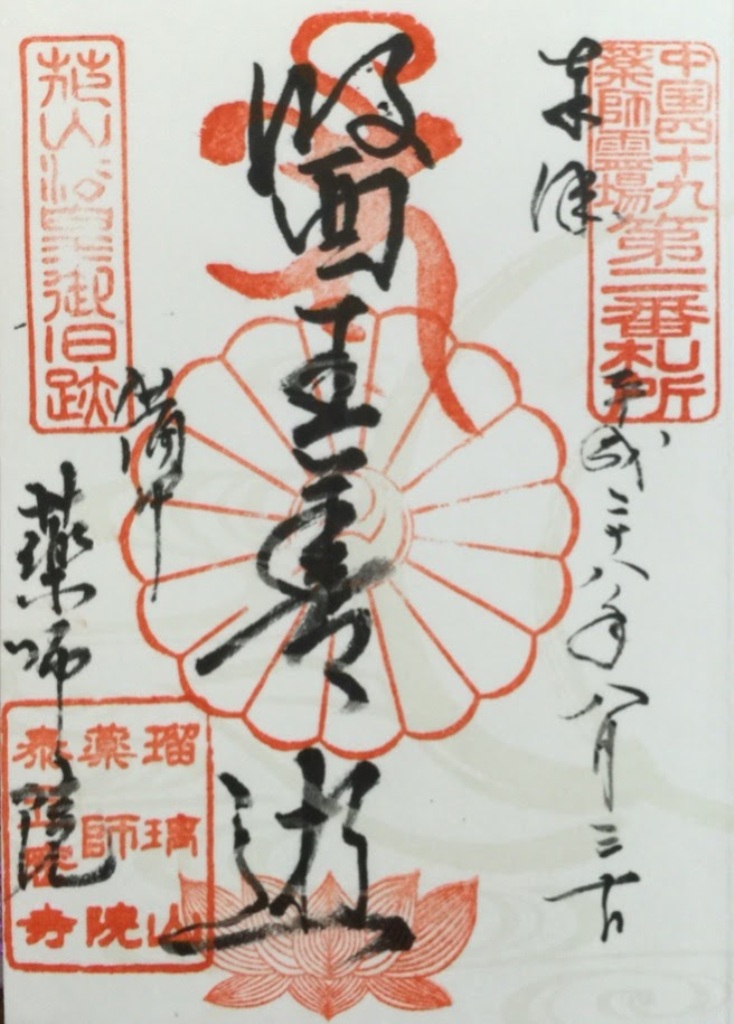 中国四十九
薬師霊場
第二番札所
奉拝
平成二十八年八月三十日
醫王善逝
花山法皇御旧跡
備中
薬師院
瑠璃山
薬師院
泰立寺